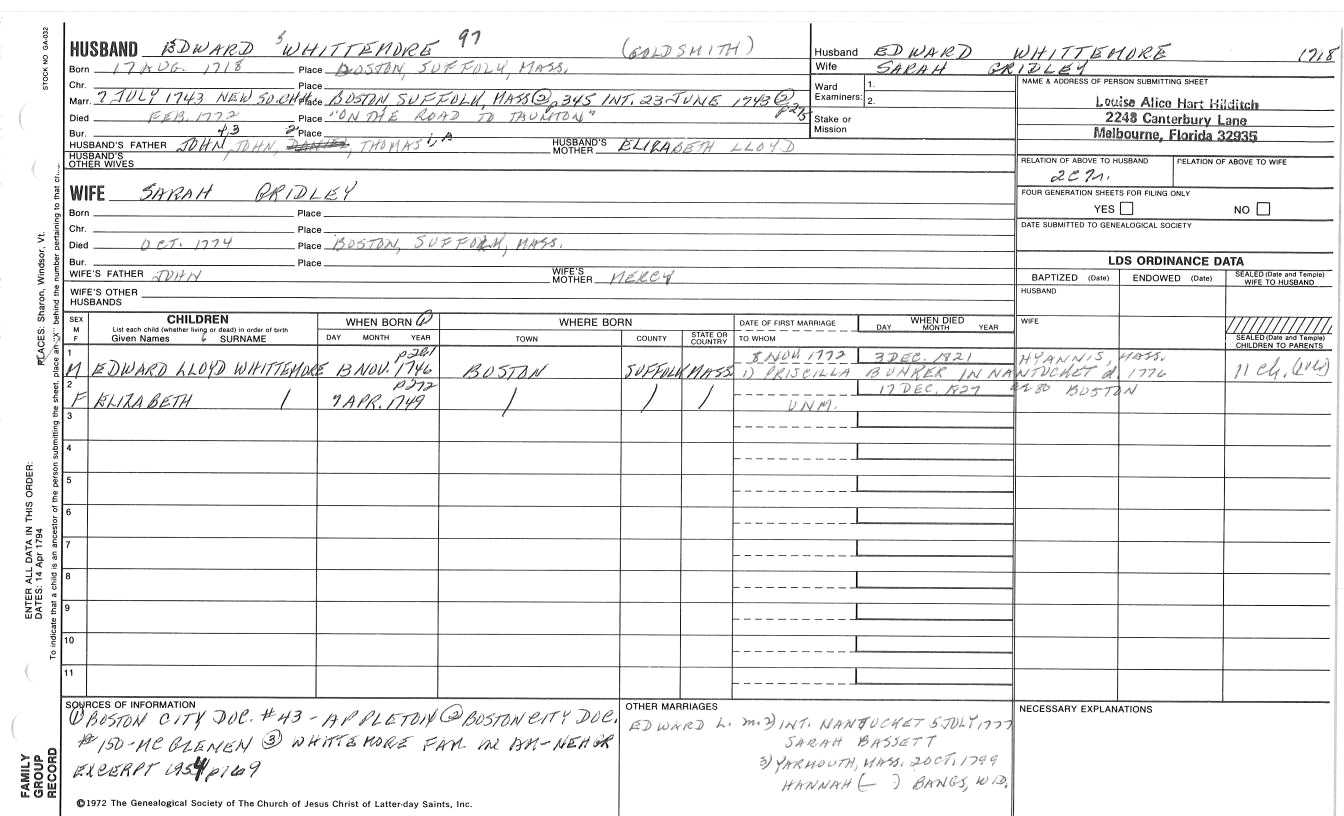 STOCK NO GA-032
HUSBAND EDWARD 5 WHITTEMORE 97 (GOLDSMITH)
Born 17 AUG. 1718 Place BOSTON, SUFFOLK, MASS.
Chr. Place
Marr. 7 JULY 1743 NEW SO. CHH Place BOSTON SUFFOLK, MASS ② p345 INT. 23 JUNE 1743 ②
Died FEB. 1772 Place "ON THE ROAD TO TAUNTON"
Bur. Place
HUSBAND'S FATHER JOHN 4, JOHN 3, DANIEL 2, THOMAS 1, A HUSBAND'S MOTHER ELIZABETH LLOYD
HUSBAND'S OTHER WIVES
Husband EDWARD WHITTEMORE 1718
Wife SARAH GRIDLEY
Ward Examiners: 1.
2.
Stake or Mission
NAME & ADDRESS OF PERSON SUBMITTING SHEET
Louise Alice Hart Hilditch
2248 Canterbury Lane
Melbourne, Florida 32935
RELATION OF ABOVE TO HUSBAND RELATION OF ABOVE TO WIFE
2C7r.
FOUR GENERATION SHEETS FOR FILING ONLY
YES NO
DATE SUBMITTED TO GENEALOGICAL SOCIETY
WIFE SARAH GRIDLEY
Born Place
Chr. Place
Died OCT. 1774 Place BOSTON, SUFFOLK, MASS.
Bur. Place
WIFE'S FATHER JOHN WIFE'S MOTHER MERCY
WIFE'S OTHER HUSBANDS
LDS ORDINANCE DATA
BAPTIZED (Date) ENDOWED (Date) SEALED (Date and Temple) WIFE TO HUSBAND
HUSBAND
WIFE
SEALED (Date and Temple) CHILDREN TO PARENTS
SEX M F CHILDREN WHEN BORN ① WHERE BORN DATE OF FIRST MARRIAGE WHEN DIED
List each child (whether living or dead) in order of birth
Given Names 6 SURNAME DAY MONTH YEAR TOWN COUNTY STATE OR COUNTRY TO WHOM DAY MONTH YEAR
1 p261 8 NOV. 1772 3 DEC. 1821 HYANNIS, MASS.
M EDWARD LLOYD WHITTEMORE 13 NOV. 1746 BOSTON SUFFOLK MASS 1) PRISCILLA BUNKER IN NANTUCKET d. 1776 11 Ch.
2 p272 17 DEC. 1827 80 BOSTON
F ELIZABETH / 7 APR. 1749 / / / UNM.
3
4
5
6
7
8
9
10
11
SOURCES OF INFORMATION
① BOSTON CITY DOC. #43 - APPLETON ② BOSTON CITY DOC.
#150 - MC GLENEN ③ WHITTEMORE FAM IN AM - NEHGR
EXCERPT 1954 p169
OTHER MARRIAGES
EDWARD L. m. 2) INT. NANTUCKET 5 JULY 1777
SARAH BASSETT
3) YARMOUTH, MASS. 2 OCT. 1799
HANNAH (- ) BANGS, WID.
NECESSARY EXPLANATIONS
©1972 The Genealogical Society of The Church of Jesus Christ of Latter-day Saints, Inc.
FAMILY GROUP RECORD
ENTER ALL DATA IN THIS ORDER:
DATES: 14 Apr 1794
PLACES: Sharon, Windsor, Vt.
To indicate that a child is an ancestor of the person submitting the sheet, place an "X" behind the number pertaining to that